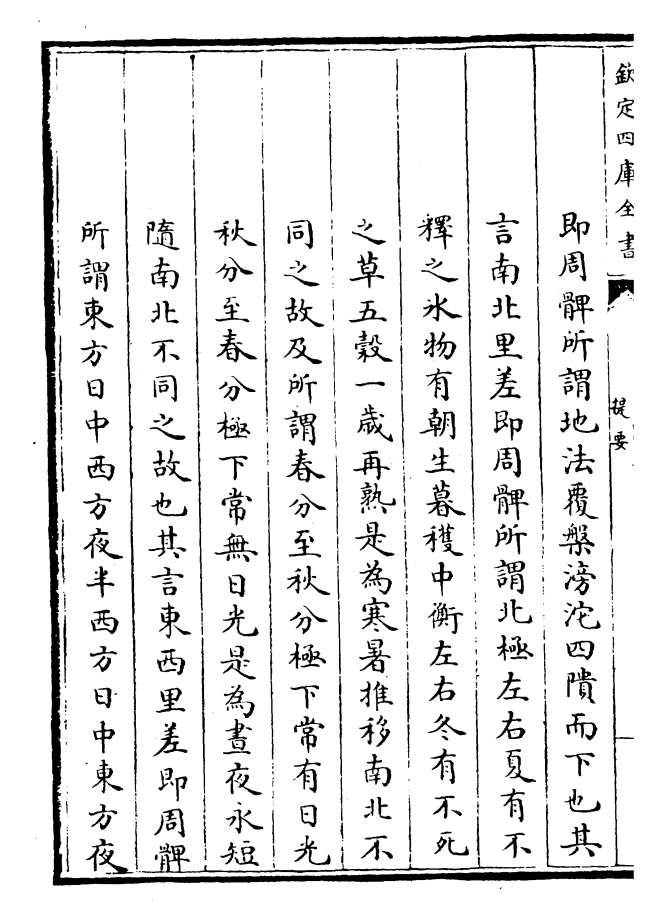 欽定四庫全書
提要
即周髀所謂地法覆槃滂沱四隤而下也其
言南北里差即周髀所謂北極左右夏有不
釋之氷物有朝生暮穫中衡左右冬有不死
之草五穀一歲再熟是為寒暑推移南北不
同之故及所謂春分至秋分極下常有日光
秋分至春分極下常無日光是為晝夜永短
隨南北不同之故也其言東西里差即周髀
所謂東方日中西方夜半西方日中東方夜